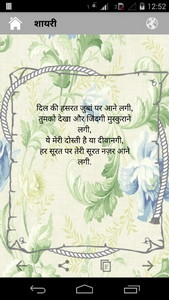 12:52
शायरी
दिल की हसरत जुबां पर आने लगी,
तुमको देखा और जिंदगी मुस्कुराने
लगी,
ये मेरी दोस्ती है या दीवानगी,
हर सूरत पर तेरी सूरत नज़र आने
लगी.